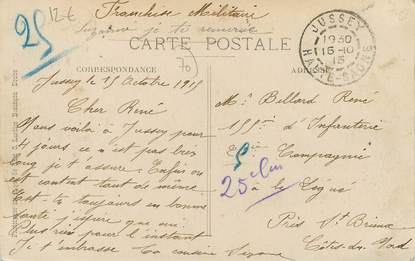 25
12€
Franchise Militaire
Suzanne je te remercie
CARTE POSTALE
JUSSEY
19 30
16-10
15
HAUTE-SAÔNE
CORRESPONDANCE
70
ADRESSE
Jussey le 15 Octobre 1915
Cher René
Nous voilà à Jussey pour
4 jours ce n'est pas très
long je t'assure. Enfin on
est content tout de même.
Es-tu toujours en bonne
santé j'espère que oui.
Plus rien pour l'instant
Je t'embrasse Ta cousine
Mr Billard René
155e d'Infanterie
Compagnie
25e
à le Légué
Près St Brieuc
Côtes-du-Nord